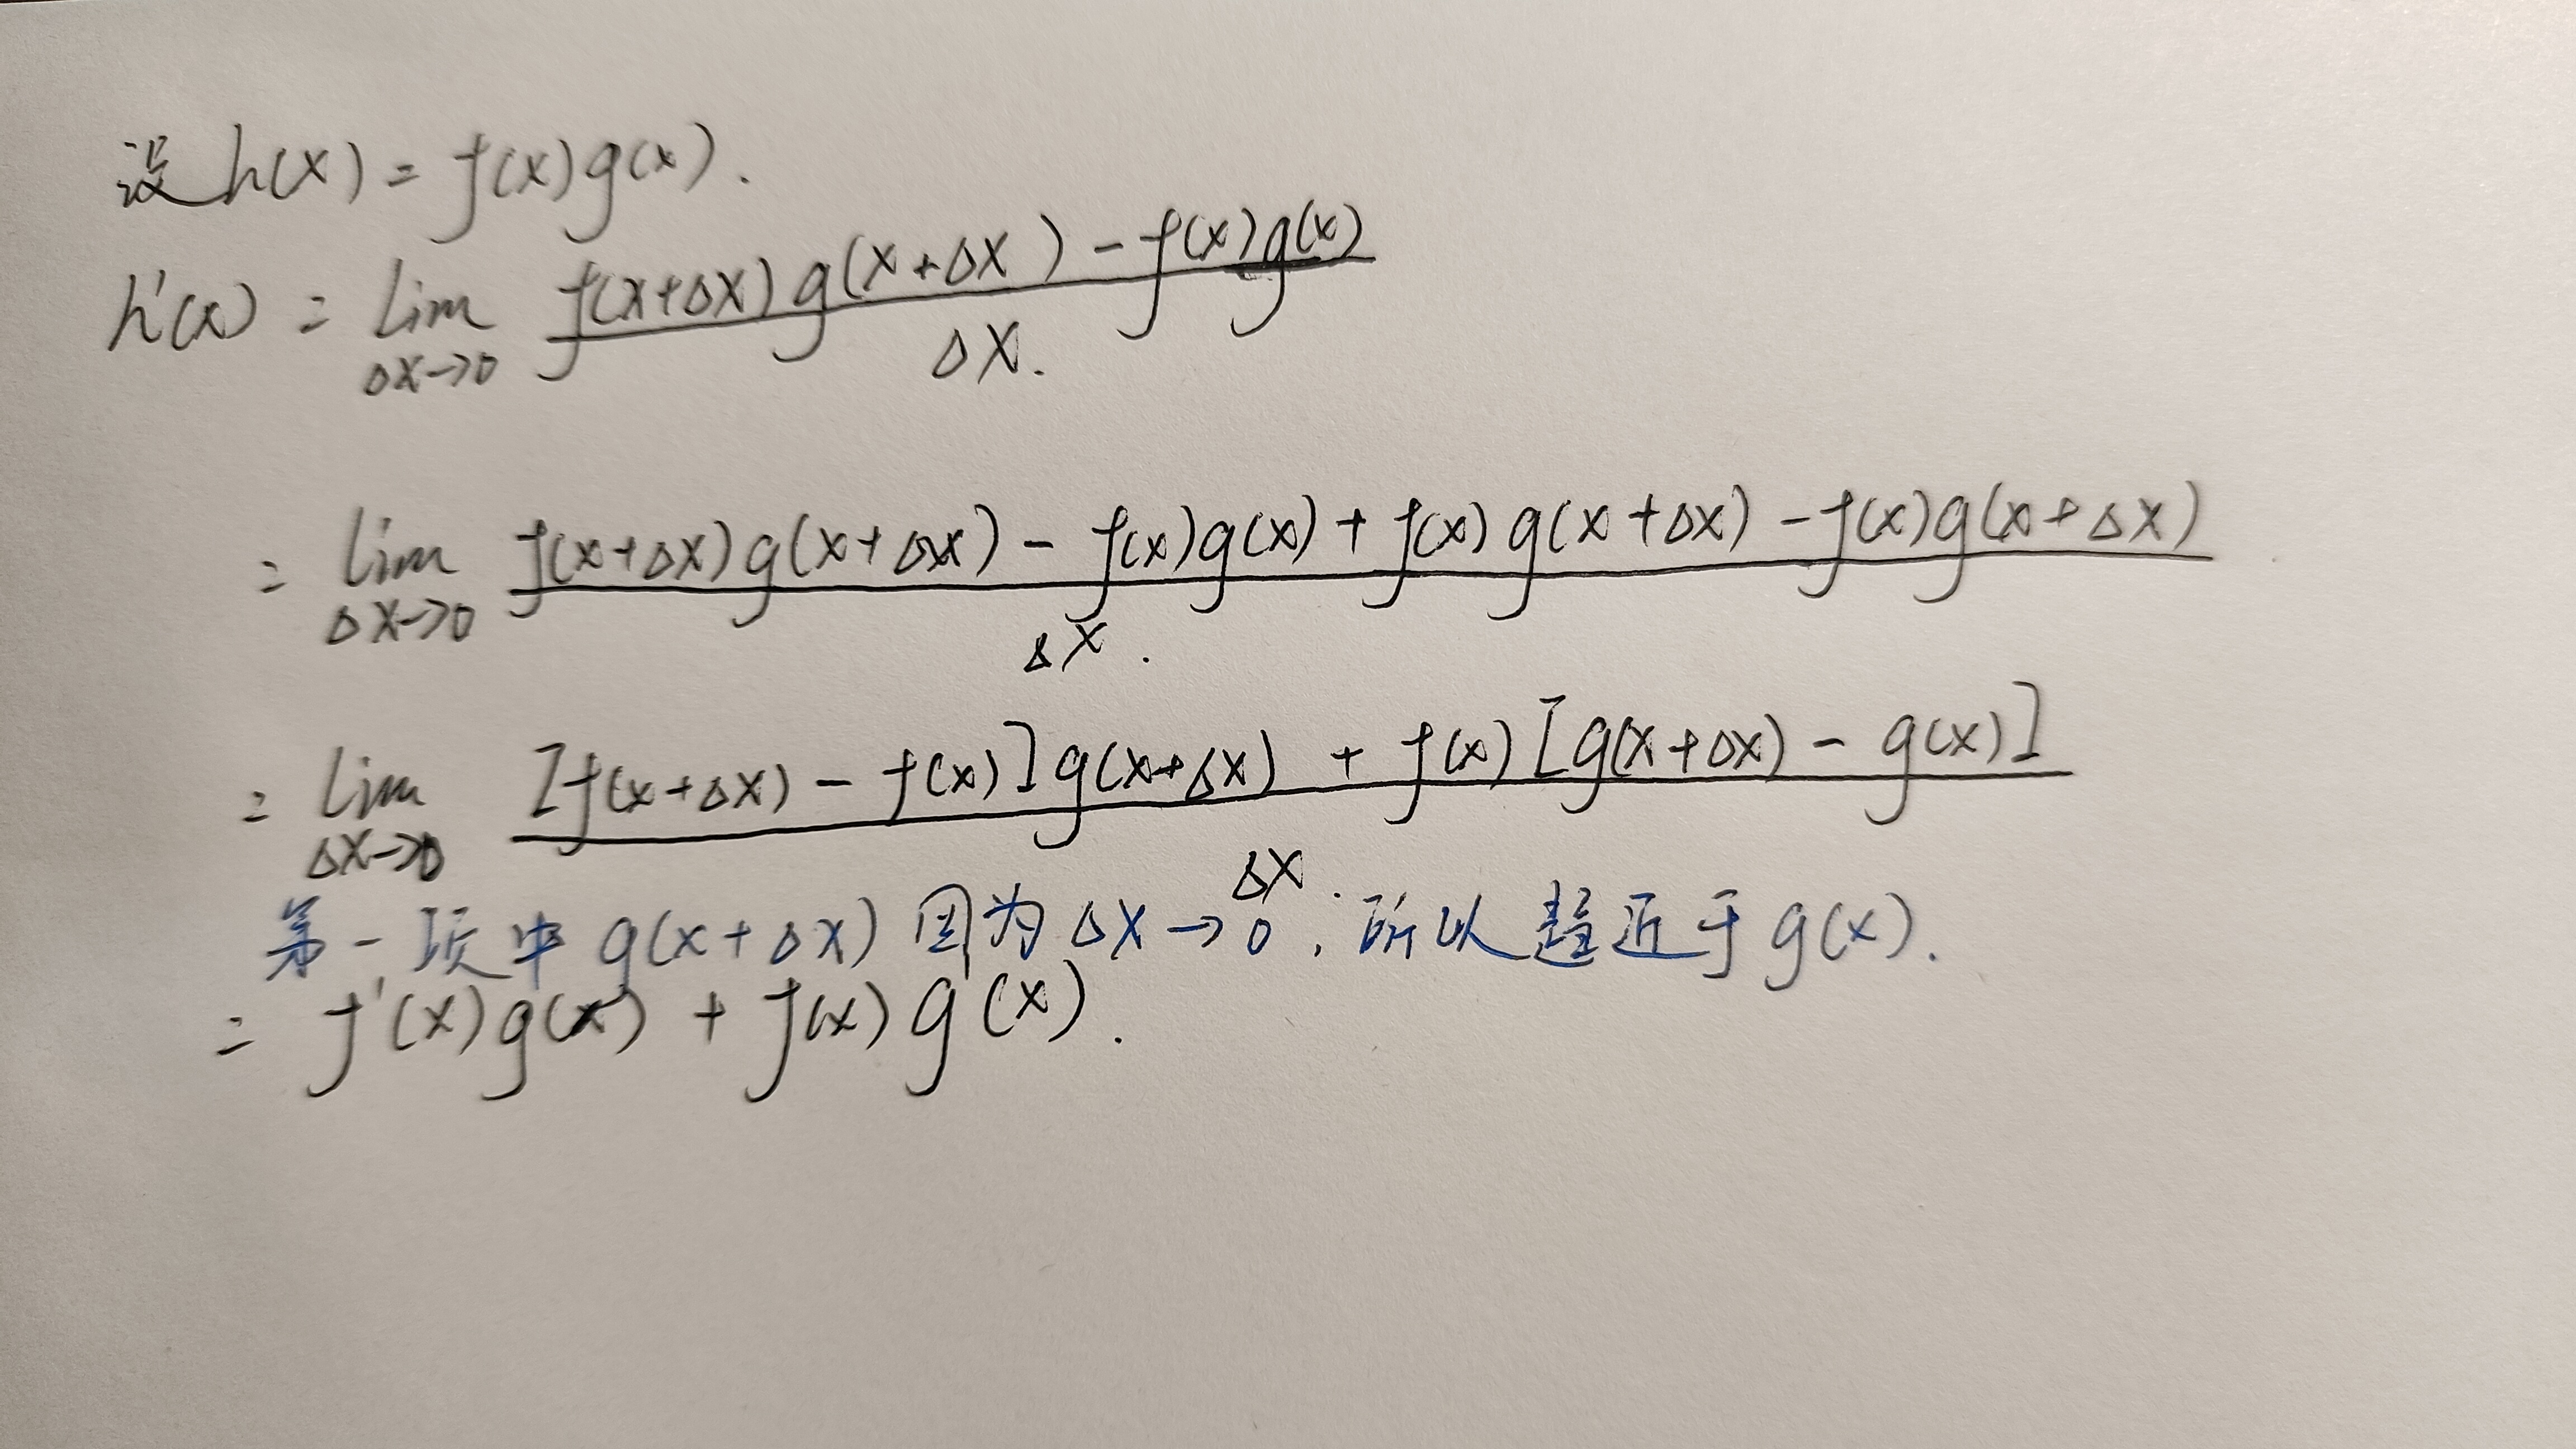 设 h(x) = f(x)g(x).
h'(x) = lim Δx→0 f(x+Δx)g(x+Δx) - f(x)g(x) / Δx.
= lim Δx→0 f(x+Δx)g(x+Δx) - f(x)g(x) + f(x)g(x+Δx) - f(x)g(x+Δx) / Δx.
= lim Δx→0 [f(x+Δx) - f(x)]g(x+Δx) + f(x)[g(x+Δx) - g(x)] / Δx.
第一项中 g(x+Δx) 因为 Δx→0, 所以趋近于 g(x).
= f'(x)g(x) + f(x)g'(x).